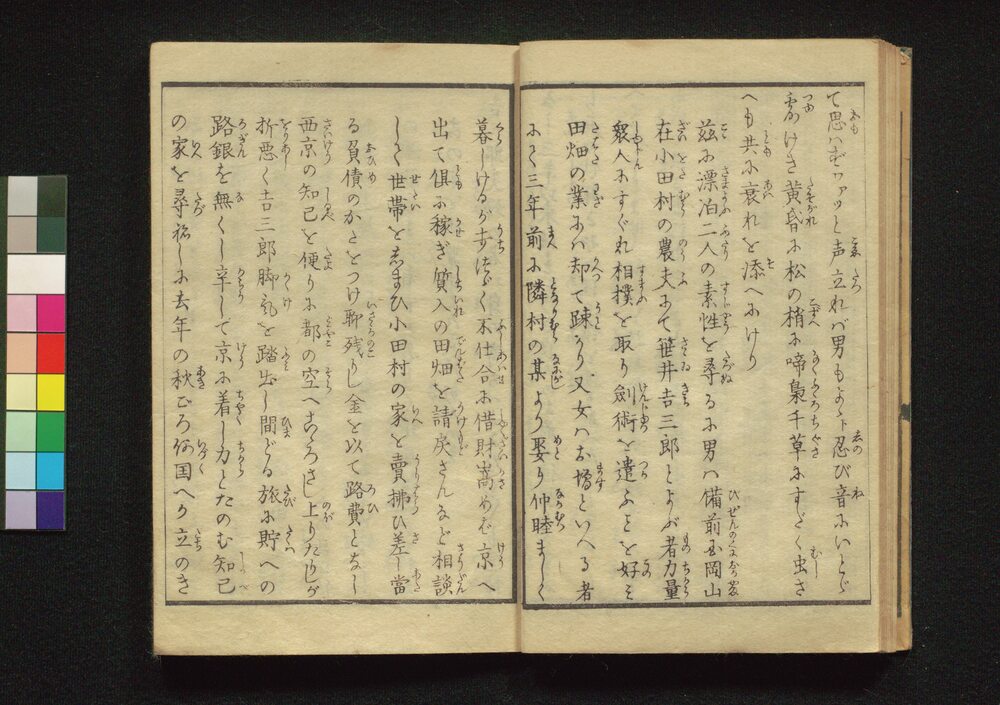 て思はずワァッと声立れば男もよゝト忍び音にいとゞ
露けき黄昏に松の梢に啼梟千草にすだく虫さ
へも共に哀れを添へにけり
茲に漂泊二人の素性を尋るに男ハ備前国岡山
在小田村の農夫にて笹井吉三郎とよぶ者力量
衆人にすぐれ相撲を取り剣術を遣ふことを好み
田畑の業にハ却て疎かり又女ハお増といへる者
にて三年前に隣村の某より娶り仲睦ましく
暮しけるが歩はく不仕合に借財嵩めば京へ
出て倶に稼ぎ質入の田畑を請戻さんなど相談
しつゝ世帯をしまひ小田村の家を賣拂ひ差當
る負債のかたをつけ聊残りし金を以て路費となし
西京の知己を便りに都の空へこゝろざし上りたりしが
折悪く吉三郎脚気を踏出し間どる旅に貯への
路銀を無くし辛じて京に着し力とたのむ知己
の家を尋ねしに去年の秋ごろ何国へか立のき